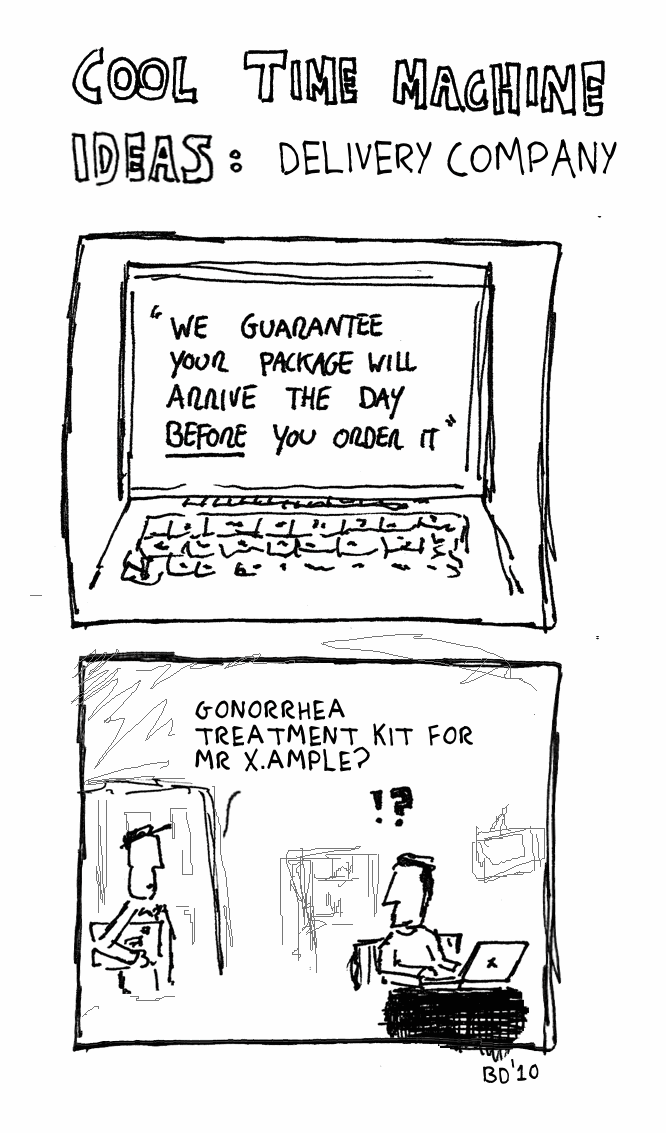 COOL TIME MACHINE
IDEAS: DELIVERY COMPANY
"WE GUARANTEE
YOUR PACKAGE WILL
ARRIVE THE DAY
BEFORE YOU ORDER IT"
GONORRHEA
TREATMENT KIT FOR
MR X.AMPLE?
!?
X
BD'10